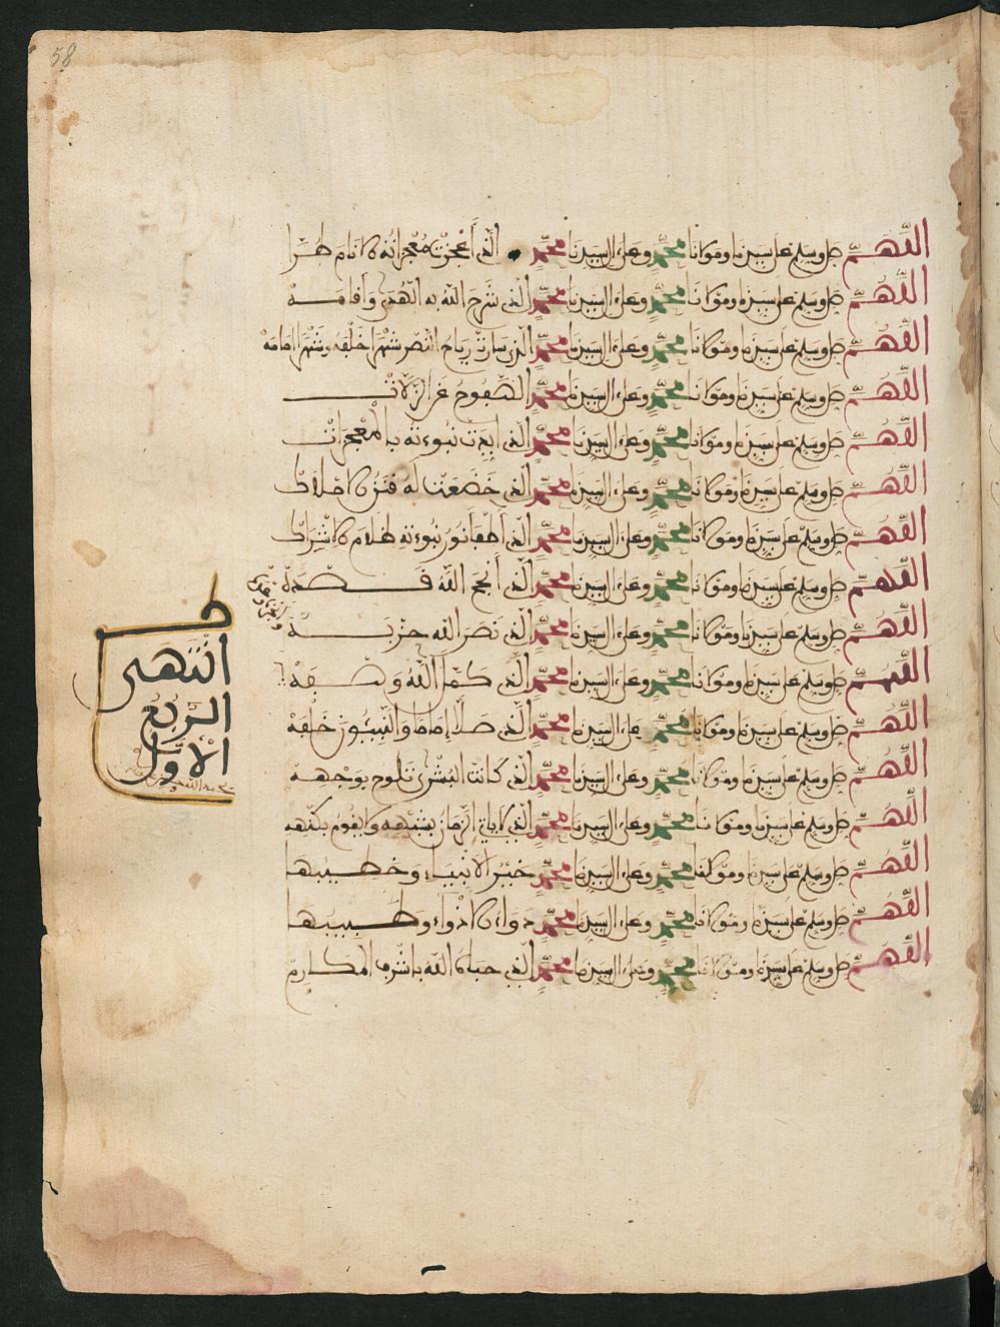 58
اللهم صل وسلم على سيدنا ومولانا محمد وعلى ال سيدنا محمد الذي أعجزت معجزاته الانام طرا
اللهم صل وسلم على سيدنا ومولانا محمد وعلى ال سيدنا محمد الذي شرح الله به الهدى وأقامه
اللهم صل وسلم على سيدنا ومولانا محمد وعلى ال سيدنا محمد الذي سارت رياح النصر شهرا خلفه وشهرا امامه
اللهم صل وسلم على سيدنا ومولانا محمد وعلى ال سيدنا محمد المعصوم عن الزلات
اللهم صل وسلم على سيدنا ومولانا محمد وعلى ال سيدنا محمد الذي ايدت نبوءته بالمعجزات
اللهم صل وسلم على سيدنا ومولانا محمد وعلى ال سيدنا محمد الذي خضعت له
اللهم صل وسلم على سيدنا ومولانا محمد وعلى ال سيدنا محمد الذي أطفأ نور نبوءته ظلام الاشراك
اللهم صل وسلم على سيدنا ومولانا محمد وعلى ال سيدنا محمد الذي أنجح الله قصده
اللهم صل وسلم على سيدنا ومولانا محمد وعلى ال سيدنا محمد الذي نصر الله حزبه
اللهم صل وسلم على سيدنا ومولانا محمد وعلى ال سيدنا محمد الذي كمل الله وصفه
اللهم صل وسلم على سيدنا ومولانا محمد وعلى ال سيدنا محمد الذي صلا إماما والنبيئون خلفه
اللهم صل وسلم على سيدنا ومولانا محمد وعلى ال سيدنا محمد الذي كانت البشرى تلوح بوجهه
اللهم صل وسلم على سيدنا ومولانا محمد وعلى ال سيدنا محمد الذي لا ياتي الزمان بشبهه ولا يقوم بكنهه
اللهم صل وسلم على سيدنا ومولانا محمد وعلى ال سيدنا محمد خير الانبياء وخطيبها
اللهم صل وسلم على سيدنا ومولانا محمد وعلى ال سيدنا محمد دواء الادواء وطبيبها
اللهم صل وسلم على سيدنا ومولانا محمد وعلى ال سيدنا محمد الذي حباه الله باشرف المكارم
انتهى
الربع
الاول